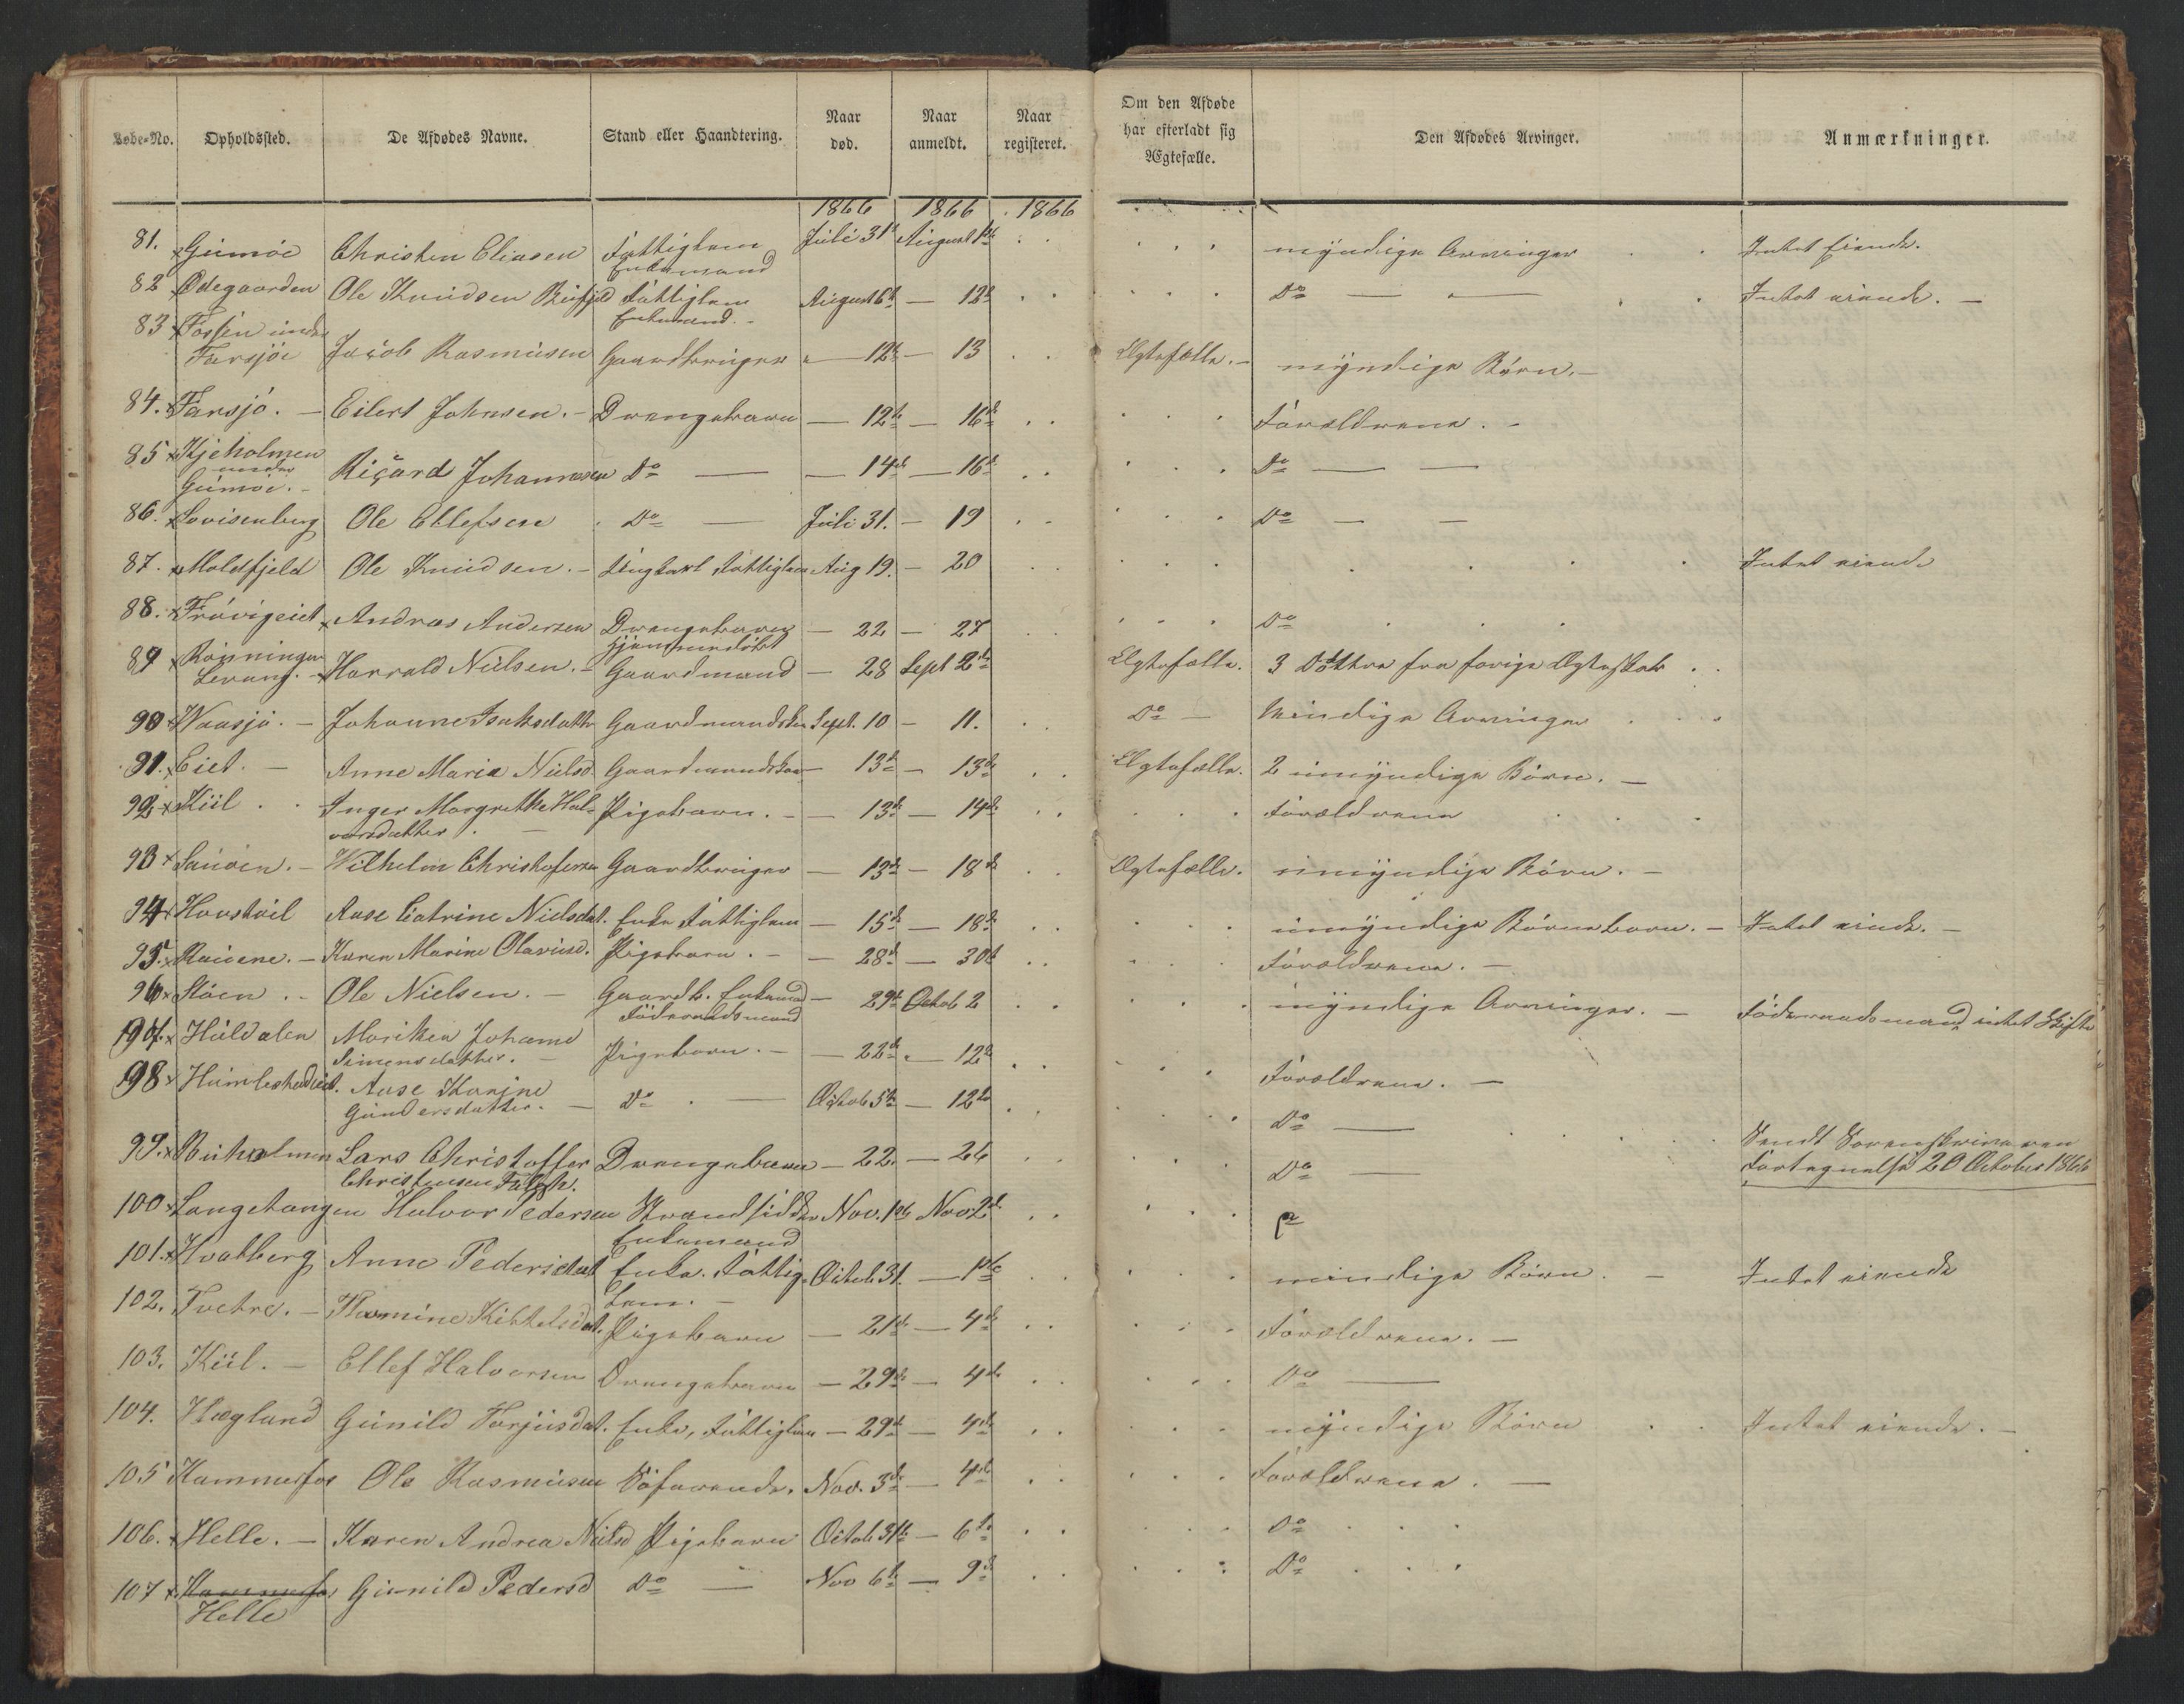 Løbe-No. Opholdssted. De Afdødes Navne. Stand eller Haandtering. Naar død. Naar anmeldt. Naar registeret. Om den Afdøde har efterladt sig Ægtefælle. Den Afdødes Arvinger. Anmærkninger.
1866 1866 1866
81. Gumøe Christen Eliasen Fattiglem Enkemand Juli 31t August 1ste myndige Arvinger Intet Eiende.
82 Ødegaarden Ole Knudsen Fattiglem Enkemand. August 6te — 12te Do — — Intet eiende. —
83 Fossen under Farsjøe Jacob Rasmusen Gaardbruger — 12te — 13 Egtefælle. — myndige Børn. —
84. Farsjö. — Eilert Johnsen. — Drengebarn — 12te — 16de Forældrene. —
85 Kjeholmen under Gumøe. — Riçard Johannesen Do — — 14de — 16de Do — —
86. Lovisenberg Ole Ellefsen Do — Juli 31. — 19 Do — —
87. Moldfjeld Ole Knudsen. — Ungkarl Fattiglem Aug 19. — 20 Intet eiende
88. Frövigeiet Andreas Andersen Drengebarn hjemmedöbt — 22 — 27 Do
89 Rönningen Levang. — Harrald Nielsen. — Gaardmand — 28 Sept 2den Egtefælle. 3 Döttre fra forige Ægteskab
90 Vaasjö. — Johanne Isaksdatter Gaardmandskone Sept. 10 — 11. Do — Mindige Arvinger
91. Eiet. — Anne Maria Nielsd. Gaardmandskone — 13de — 13de Egtefælle. 2 umyndige Börn. —
92 Kiil Inger Margrethe Halvorsdatter. — Pigebarn. — — 13de — 14de Forældrene
93 Sauöen. — Wilhelm Christofersen Gaardbruger — 13de — 18de Ægtefælle. umyndige Börn. —
94 Aase Catrine Nielsdat. Enke Fattiglem — 15de — 18de umyndige Börnebørn. — Intet eiende. —
95. Karen Marine Olaviusd. Pigebarn. — — 28de — 30te Forældrene. —
96 Stöen. — Ole Nielsen. — Gaardb. Enkemand Föderaadsmand — 29de Octob 2 myndige Arvinger. — Föderaadsmand intet Skifte
97. Hüldalen Mariken Johanne Simensdatter. — Pigebarn. — — 22de — 12te Forældrene. —
98 Aase Karine Gundersdatter. — Do — Octob 5te — 12te Do —
99. Buholmen Lars Christoffer Christensen Drengebarn — 22. — 26 Do — Sendt Sorenskriveren Fortegnelse 20 October 1866
100 Langetangen Halvor Pedersen Strandsidder Enkemand Nov. 1ste Nov 2de
101. Hvalberg Anne Pedersdat Enke. Fattiglem. — Octob 31. — 1ste mindige Börn. — Intet eiende
102. Tvetre. — Kittelsdat. Pigebarn — 21de — 4de Forældrene. —
103. Kiil. — Ellef Halvorsen Drengebarn — 29de — 4de Do —
104. Hægland Gunild Tarjusdat. Enke, Fattiglem — 29de — 4de myndige Börn Intet eiende. —
105 Kammerfos Ole Rasmusen Söfarende. Nov. 3de — 4de Forældrene. —
106. Helle. — Karen Andrea Nielsd Pigebarn Octob 31te — 6te Do
107 Kammerfos Helle Gunild Pedersd Do — Nov 6te — 9de Do